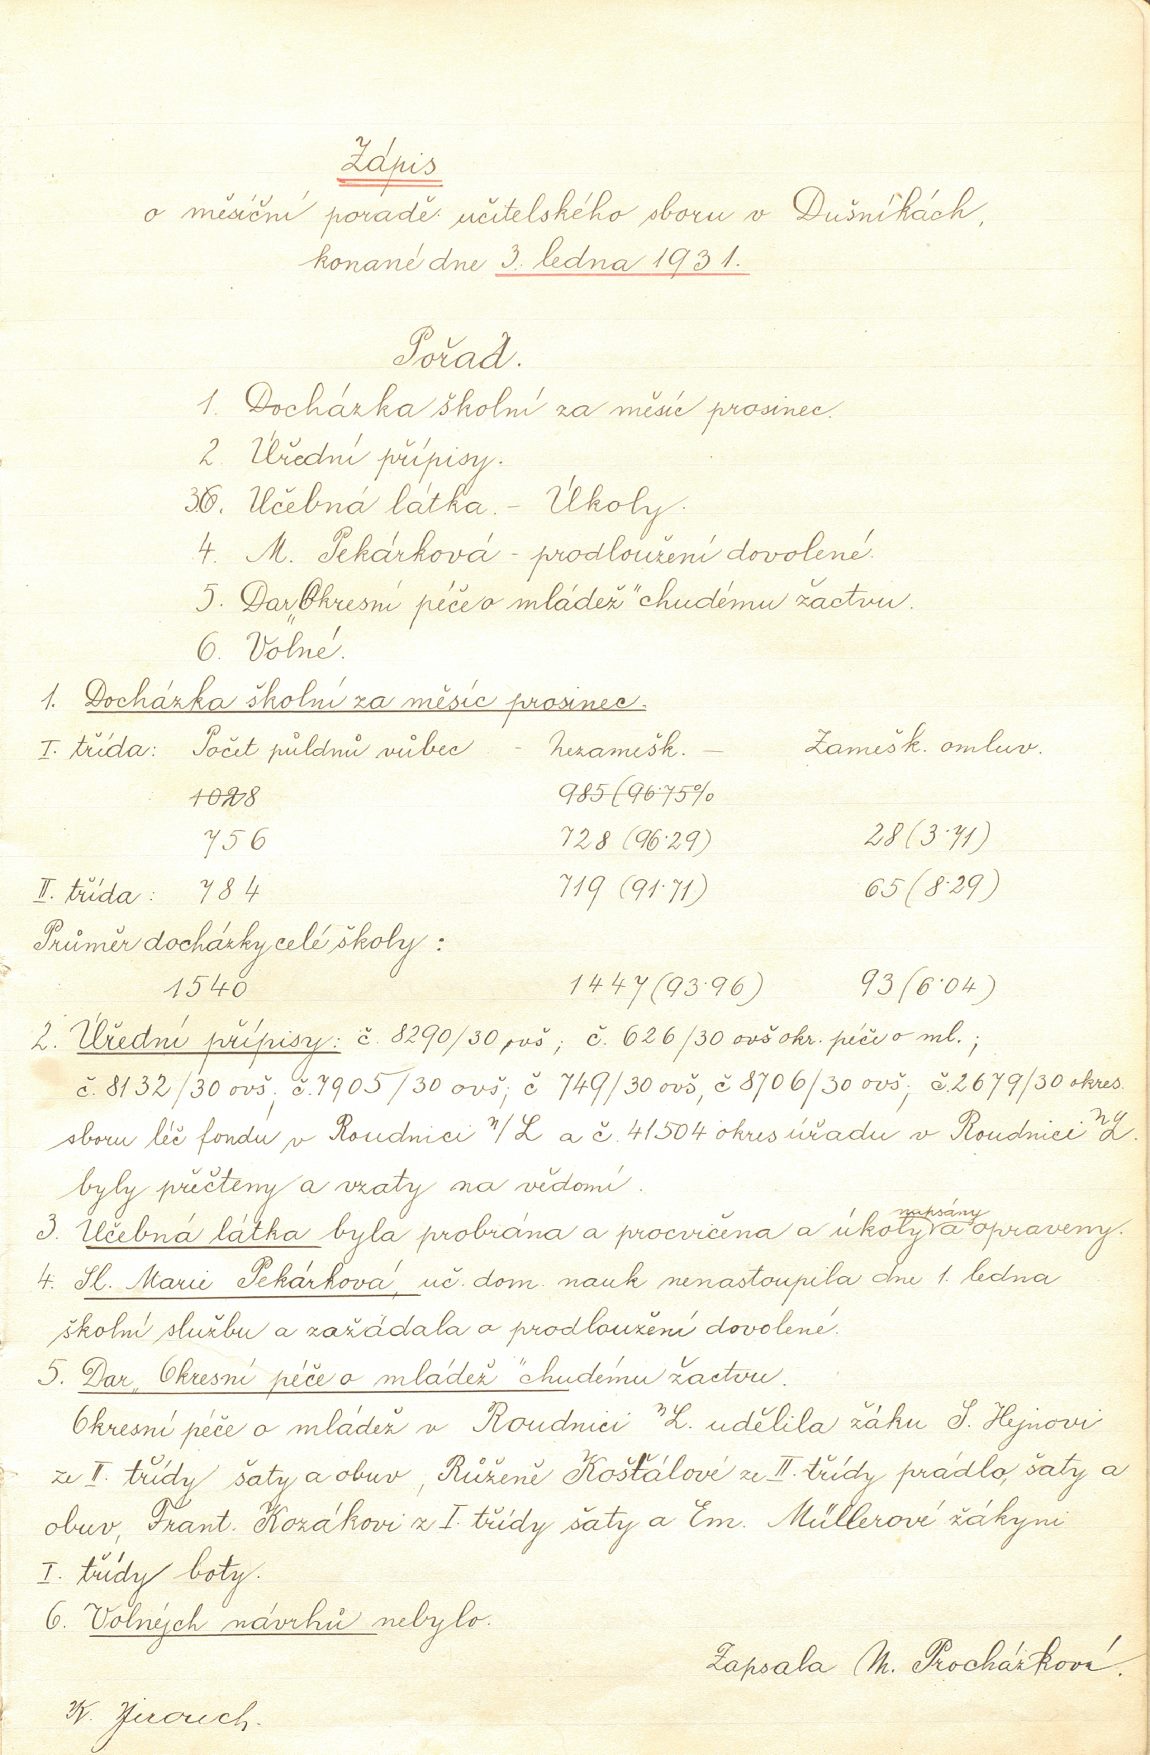 Zápis
o měsíční poradě učitelského sboru v Dušníkách,
konané dne 3. ledna 1931.
Pořad.
1. Docházka školní za měsíc prosinec.
2. Úřední přípisy.
3. Učebná látka. – Úkoly.
4. M. Pekárková – prodloužení dovolené.
5. Dar „Okresní péče o mládež" chudému žactvu.
6. Volné.
1. Docházka školní za měsíc prosinec.
I. třída: Počet půldnů vůbec - Nezamešk. — Zamešk. omluv.
1028 985 (96·75%
756 728 (96·29) 28 (3·71)
II. třída: 784 719 (91·71) 65 (8·29)
Průměr docházky celé školy:
1540 1447 (93·96) 93 (6·04)
2. Úřední přípisy: č. 8290/30 ovš; č. 626/30 ovš okr. péči o ml.;
č. 8132/30 ovš, č. 7905/30 ovš; č 749/30 ovš, č 8706/30 ovš; č. 2679/30 okres.
sboru léč fondu v Roudnici n/L a č. 41504 okres úřadu v Roudnici n/L.
byly přečteny a vzaty na vědomí.
3. Učebná látka byla probrána a procvičena a úkoly napsány a opraveny.
4. Sl. Marie Pekárková, uč. dom. nauk nenastoupila dne 1. ledna
školní službu a zažádala o prodloužení dovolené.
5. Dar „Okresní péče o mládež" chudému žactvu.
Okresní péče o mládež v Roudnici n L. udělila žáku J. Hejnovi
ze II. třídy šaty a obuv, Růženě Košťálové ze II. třídy prádlo, šaty a
obuv, Frant. Kozákovi z I. třídy šaty a Em. Müllerové žákyni
I. třídy boty.
6. Volných návrhů nebylo.
Zapsala M. Procházková.